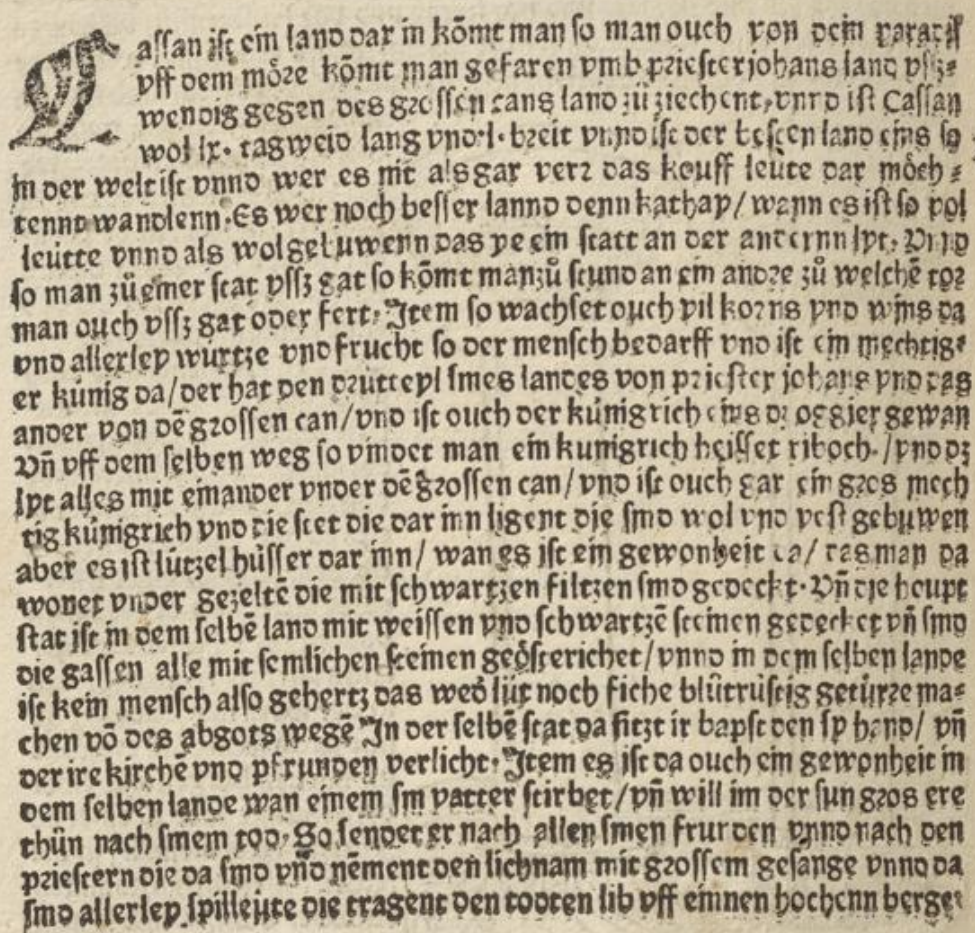 Cassan ist ein land dar in kōmt man so man ouch von dem paradiſ
vff dem möre kōmt man gefaren vmb priester johans land vſz⸗
wendig gegen des grossen cans land zū ziechent, vnnd ist Cassan
wol lx. tagweid lang vnd l. breit vnnd ist der besten land eins so
in der welt ist vnnd wer es nit als gar verr das kouff leüte dar möch⸗
tennd wandlenn. Es wer noch besser lannd denn kathay/ wann es ist so vol
leütte vnnd als wol gebuwenn das ye ein statt an der andernn lyt. Vnnd
so man zū einer stat vſſz gat so kōmt man zū stund an ein andre zū welchē tor
man ouch vſſz gat oder fert. Item so wachset ouch vil korns vnd wins da
vnd allerley wurtze vnd frucht so der mensch bedarff vnd ist ein mechtig⸗
er künig da/ der hat den drütteyl sines landes von priester johans vnd das
ander von dē grossen can/ vnd ist ouch der künigrich eins dz oggier gewan
Vn̄ vff dem selben weg so vindet man ein kunigrich heisset riboch./ vnd dz
lyt alles mit einander vnder dē grossen can/ vnd ist ouch gar ein gros mech
tig künigrich vnd die stet die dar inn ligent die sind wol vnd vest gebuwen
aber es ist lützel hüsser dar inn/ wan es ist ein gewonheit da/ das man da
wonet vnder gezeltē die mit schwartzen filtzen sind gedeckt. Vn̄ die houpt
stat ist in dem selbē land mit weissen vnd schwartzē steinen gedecket vn̄ sind
die gassen alle mit semlichen steinen geösterichet/ vnnd in dem selben lande
ist kein mensch also gehertz das wed̄ lüt noch fiche blütrüstig getürre ma⸗
chen vō des abgots wegē In der selbē stat da sitzt ir bapst den sy hand/ vn̄
der ire kirchē vnd pfrunden verlicht. Item es ist da ouch ein gewonheit in
dem selben lande wan einem sin vatter stirbet/ vn̄ will im der sun gros ere
thün nach sinem tod. So sendet er nach allen sinen frunden vnnd nach den
priestern die da sind vnd nēment den lichnam mit grossem gesange vnnd da
sind allerley spilleüte die tragent den todten lib vff einnen hochenn berge